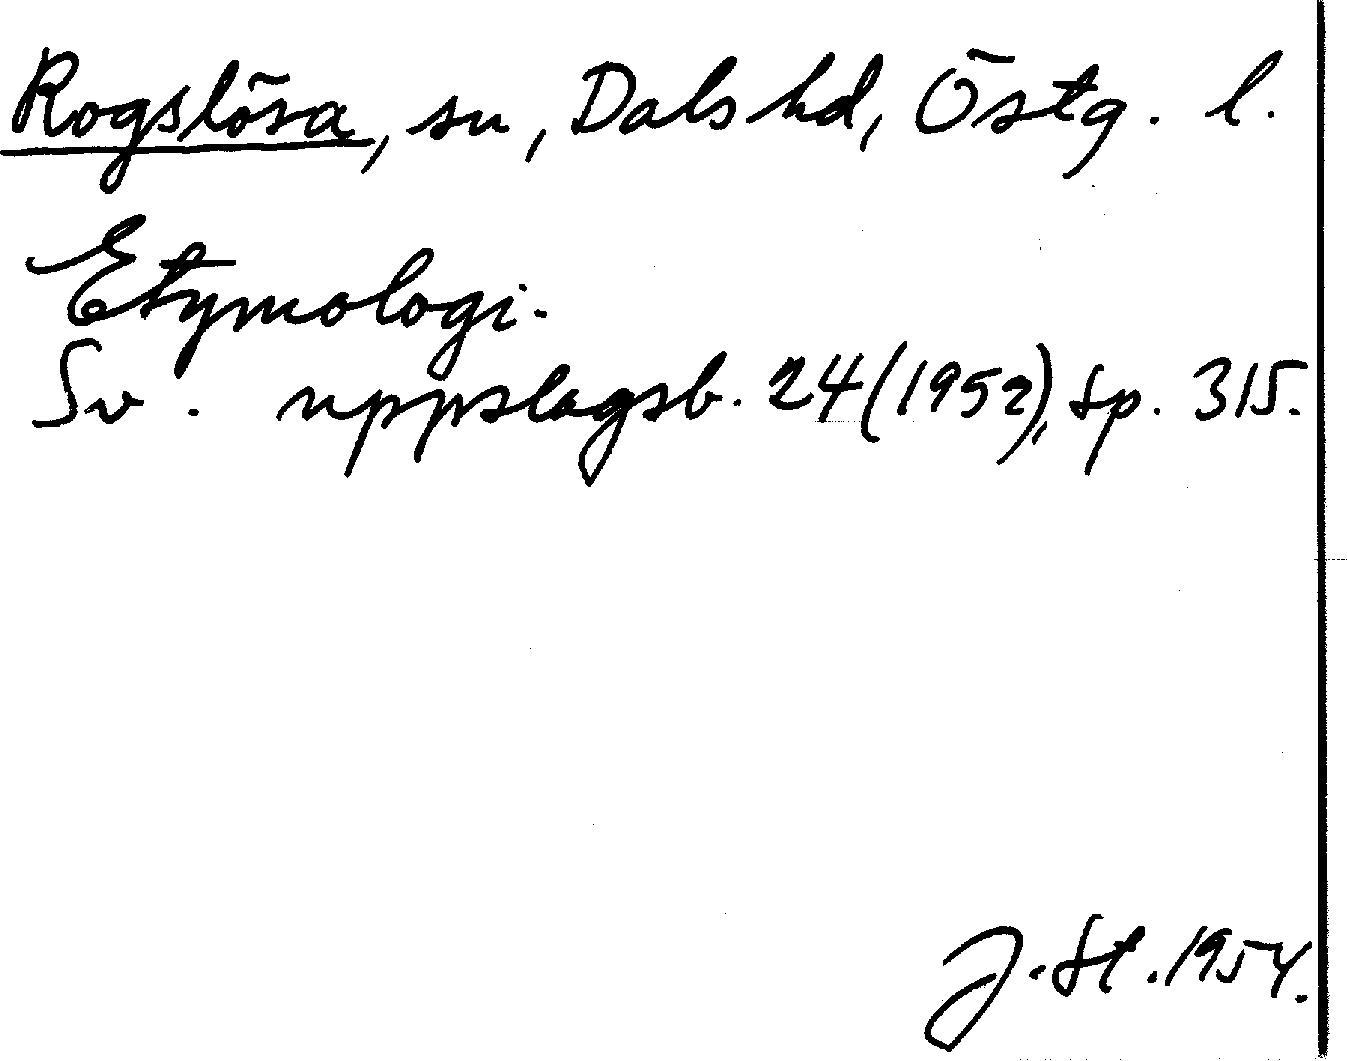 Rogslösa, sn, Dals hd, Östg. l.
Etymologi.
Sv. uppslagsb. 24 (1952), sp. 315.
J. St. 1954.